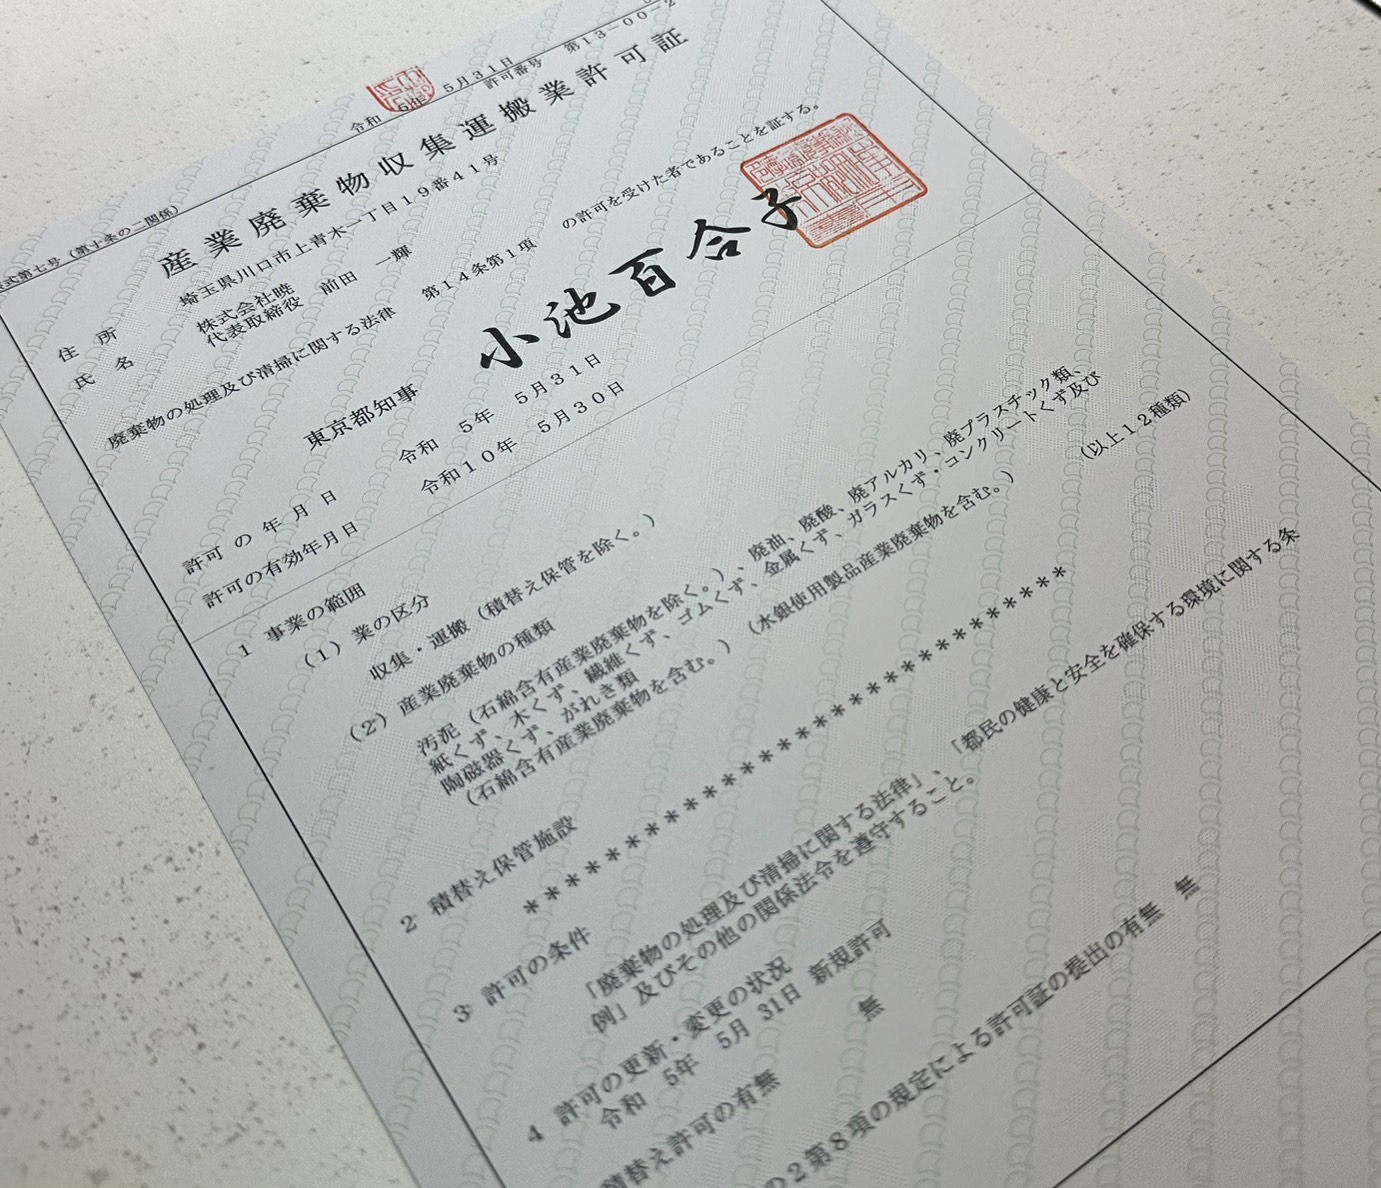 式第七号（第十条の二関係）
令和 5年 5月31日
許可番号 第13-00-2
産業廃棄物収集運搬業許可証
住所 埼玉県川口市上青木一丁目19番41号
氏名 株式会社暁
代表取締役 前田 一輝
廃棄物の処理及び清掃に関する法律 第14条第1項 の許可を受けた者であることを証する。
東京都知事 小池百合子
許可の年月日 令和 5年 5月31日
許可の有効年月日 令和10年 5月30日
1 事業の範囲
（1）業の区分
収集・運搬（積替え保管を除く。）
（2）産業廃棄物の種類
汚泥（石綿含有産業廃棄物を除く。）、廃油、廃酸、廃アルカリ、廃プラスチック類、
紙くず、木くず、繊維くず、ゴムくず、金属くず、ガラスくず・コンクリートくず及び
陶磁器くず、がれき類 （以上12種類）
（石綿含有産業廃棄物を含む。）（水銀使用製品産業廃棄物を含む。）
2 積替え保管施設
＊＊＊＊＊＊＊＊＊＊＊＊＊＊＊＊＊＊＊＊＊＊＊＊＊＊
3 許可の条件
「廃棄物の処理及び清掃に関する法律」、「都民の健康と安全を確保する環境に関する条
例」及びその他の関係法令を遵守すること。
4 許可の更新・変更の状況
令和 5年 5月 31日 新規許可
積替え許可の有無 無
の2第8項の規定による許可証の提出の有無 無